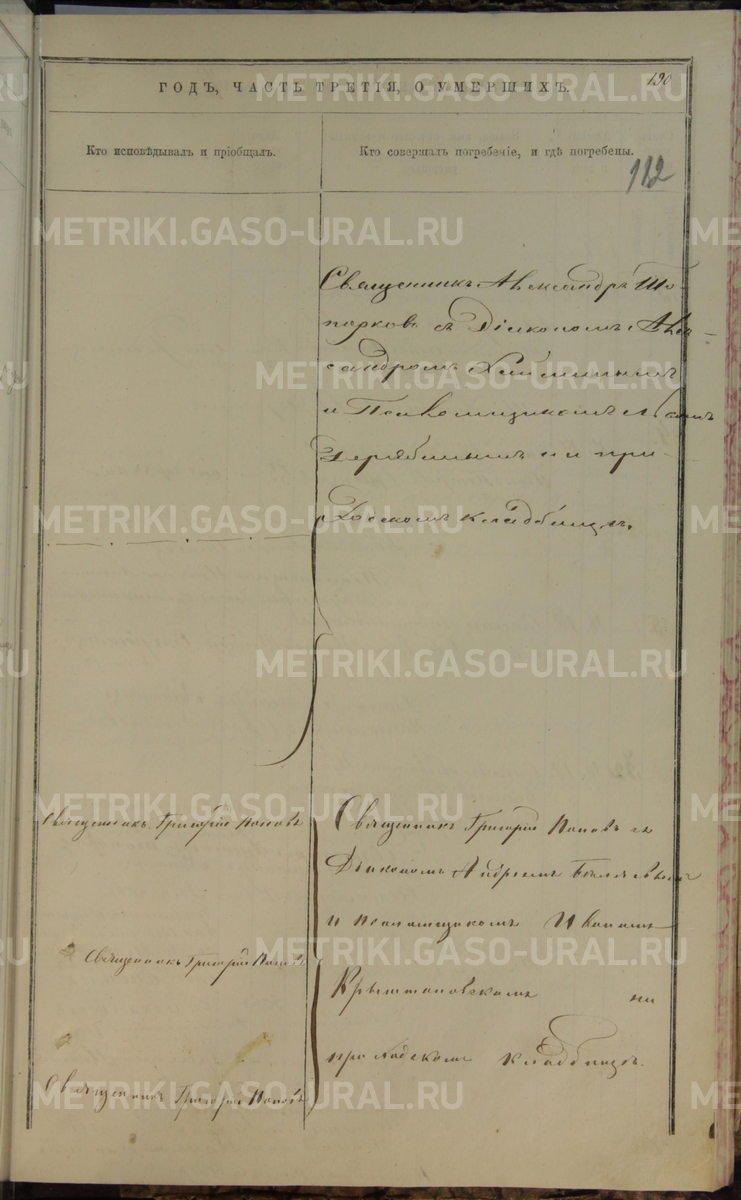 190
ГОДЪ, ЧАСТЬ ТРЕТІЯ, О УМЕРШИХЪ.
Кто исповѣдывалъ и пріобщалъ.
Кто совершалъ погребеніе, и гдѣ погребены.
112
Священникъ Александръ То-
порковъ съ Діакономъ Алек-
сандромъ
и Псаломщикомъ
на при-
ходскомъ кладбищѣ.
Священникъ Григорій Поповъ
Священникъ Григорій Поповъ
Священникъ Григорій Поповъ
Священникъ Григорій Поповъ съ
Діакономъ Андреемъ
и псаломщикомъ Иваномъ
Крыжановскимъ на
приходскомъ кладбищѣ.
METRIKI.GASO-URAL.RU